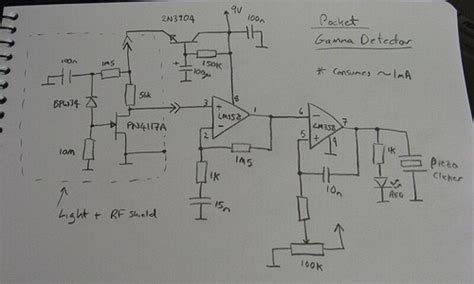 Pocket
Gamma Detector
* Consumes ~1mA
2N3904
9V
100n
150K
100µ
100n
1M5
56k
BPW34
PN4117A
10M
Light + RF shield
3
+
8
LM358
1
2
-
1M5
1K
15n
6
-
LM358
7
5
+
4
10n
100K
1K
RED
Piezo
Clicker